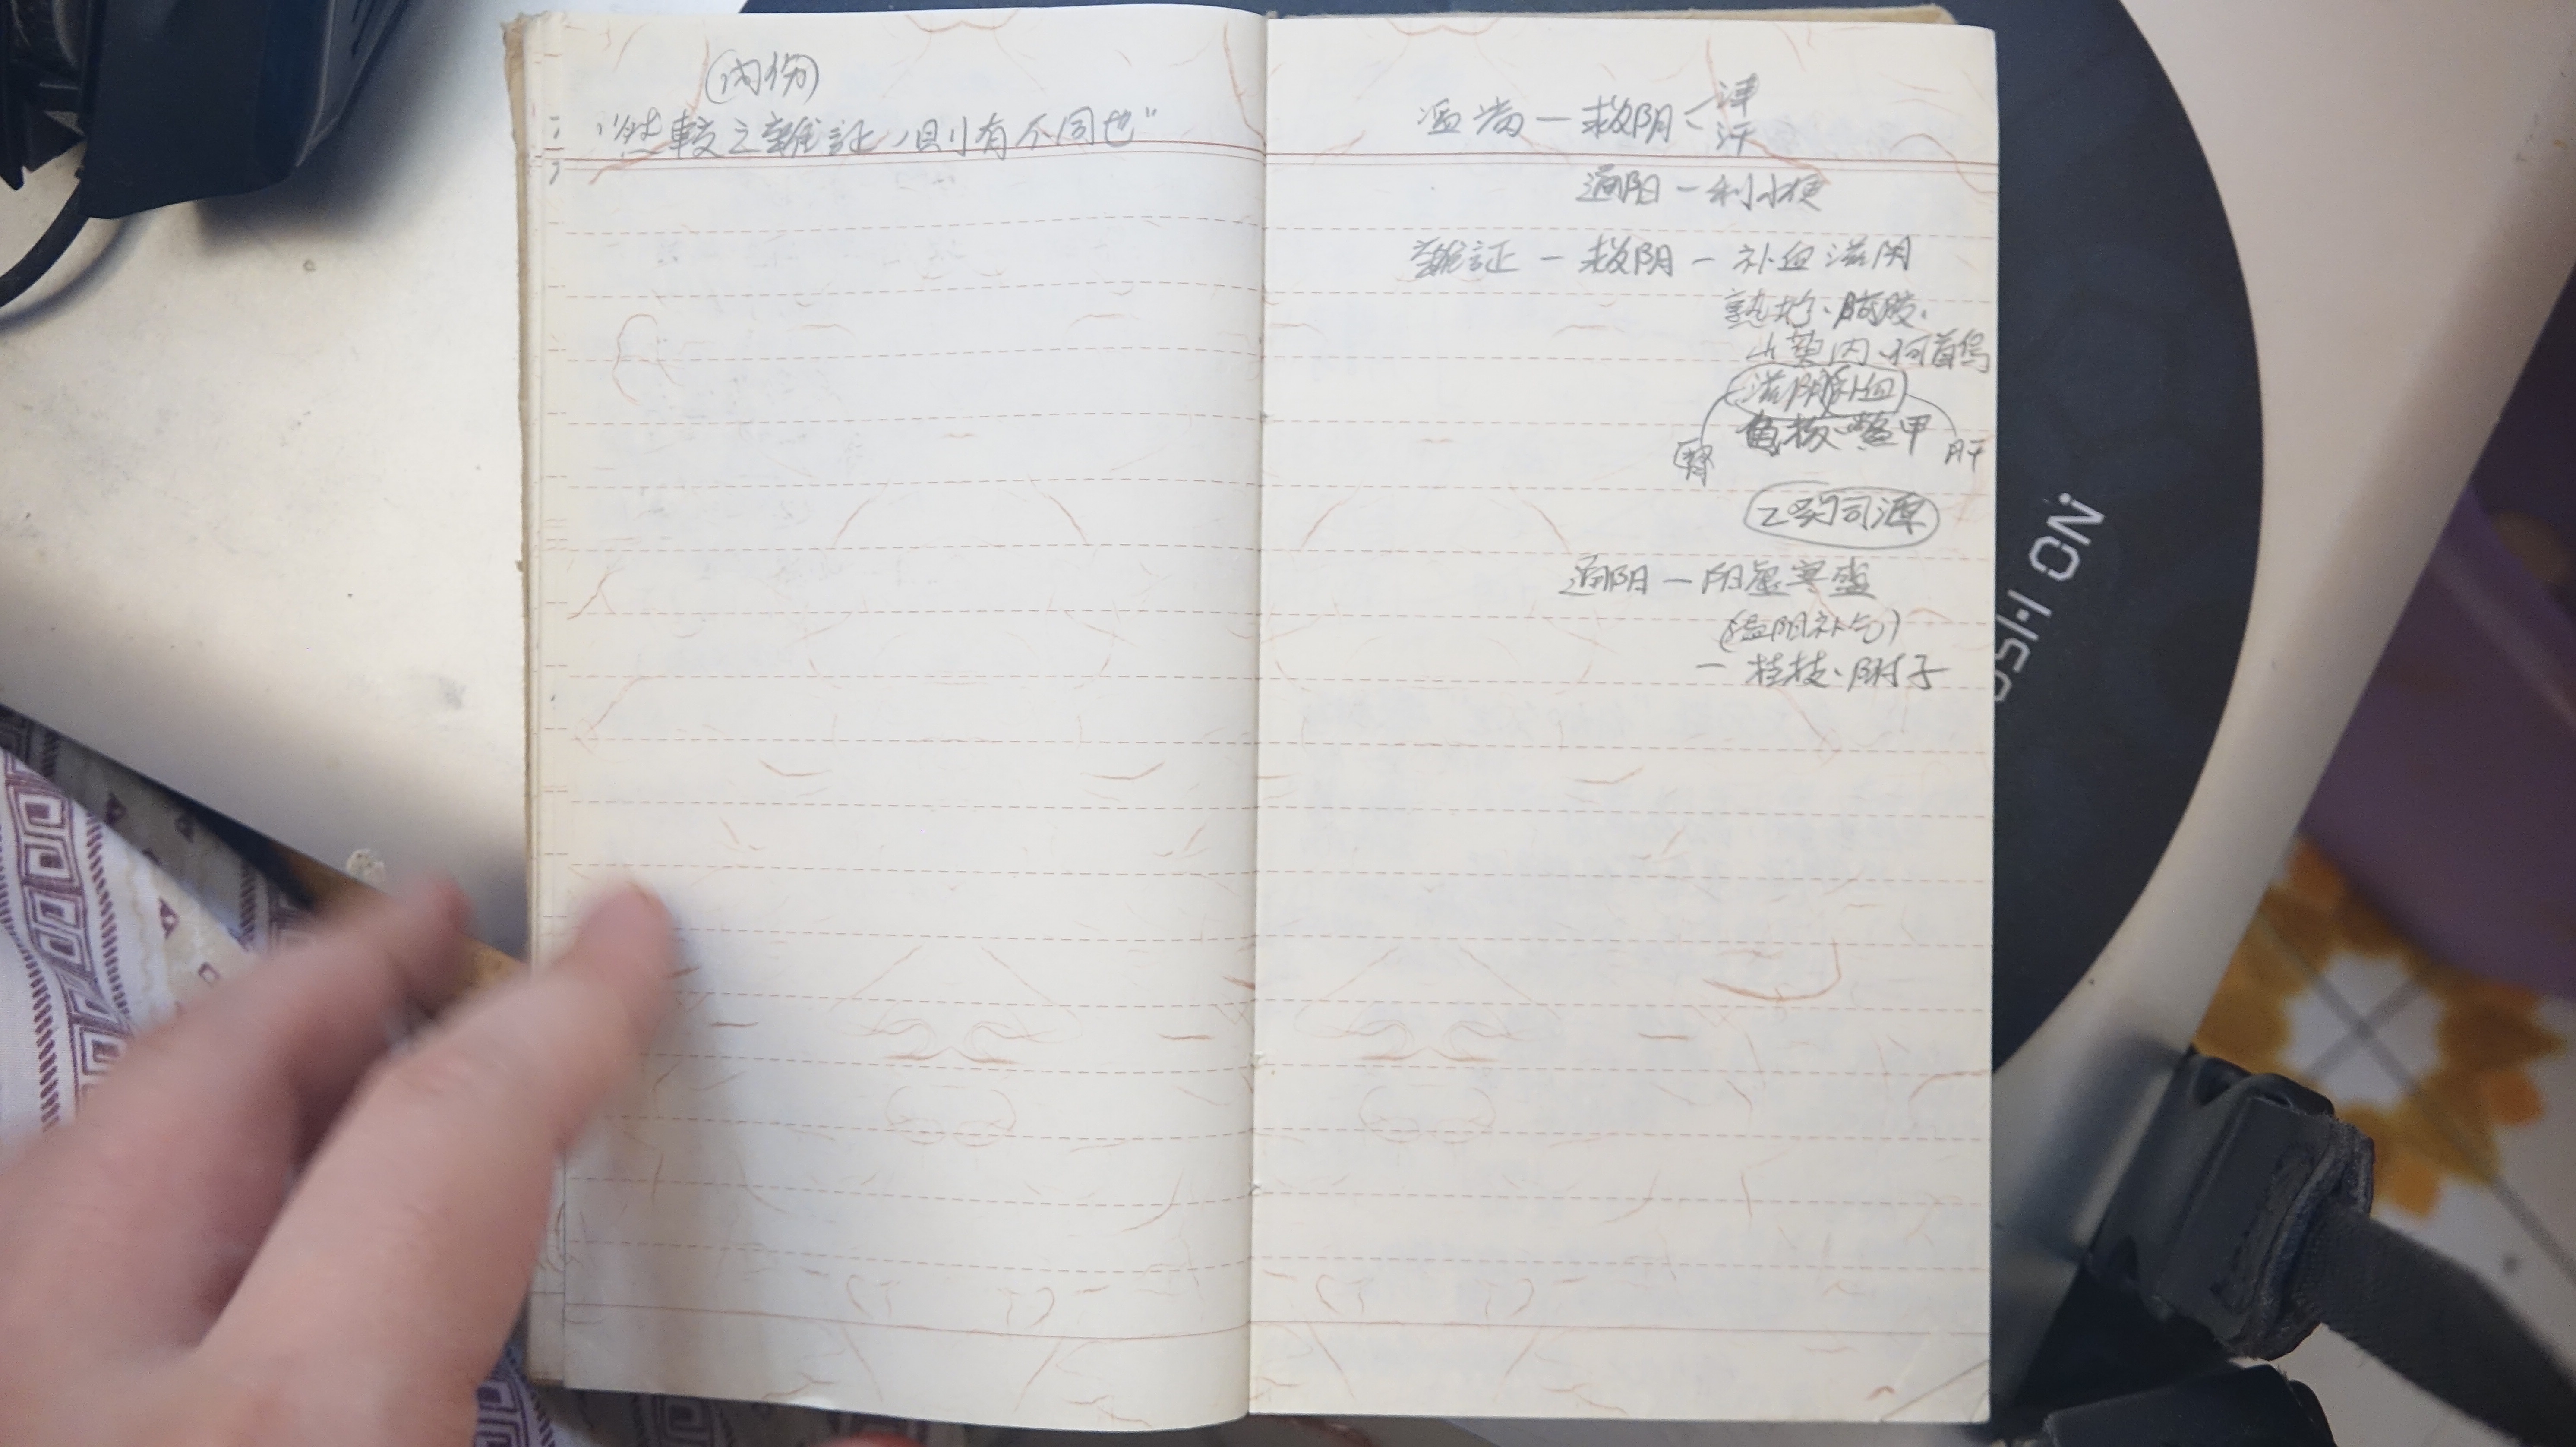 内伤
"然較之雜証,則有不同也"
温病 — 救阴 — 津
汗
通阳 — 利小便
雜証 — 救阴 — 补血滋阴
熟地、阿胶、
山萸肉、何首乌
滋阴补血
龟板、鳖甲
腎 肝
乙癸同源
通阳 — 阳虚寒盛
(温阳补气)
— 桂枝、附子
NO HSO